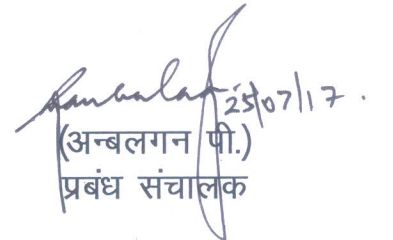 25/07/17.
(अन्बलगन पी.)
प्रबंध संचालक